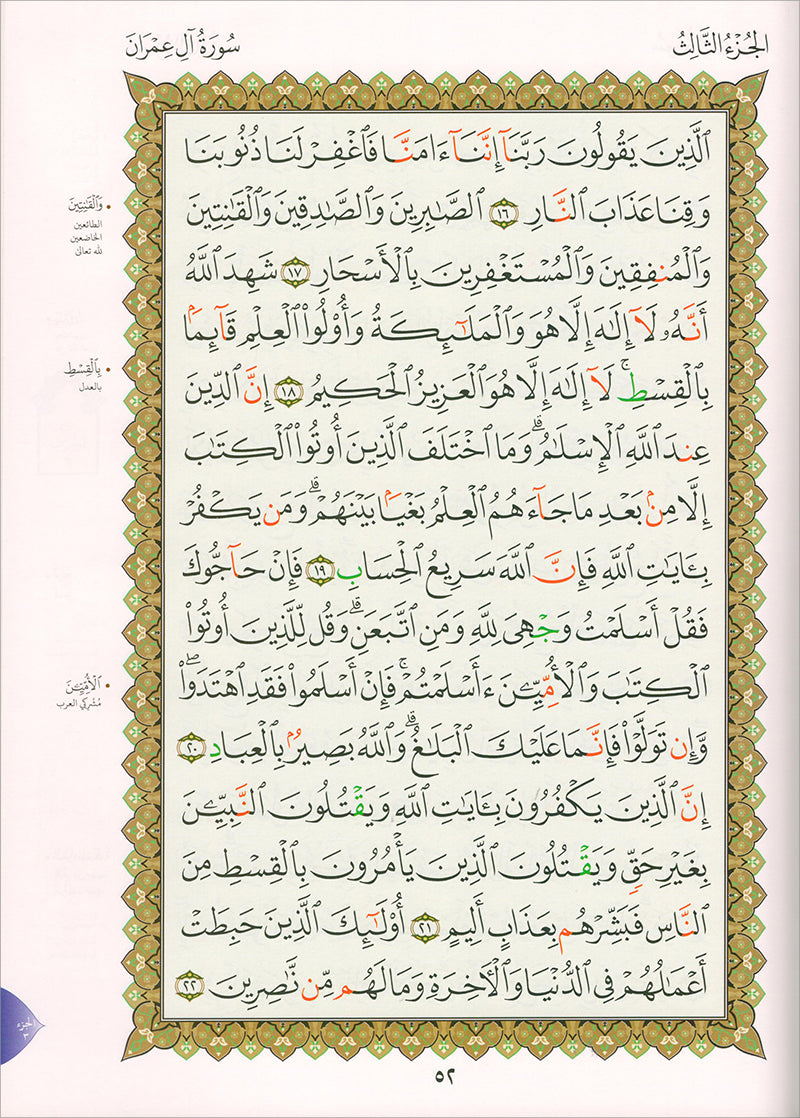 الجُزْءُ الثَّالِثُ
سُورَةُ آلِ عِمْرَانَ
ٱلَّذِينَ يَقُولُونَ رَبَّنَآ إِنَّنَآ ءَامَنَّا فَٱغْفِرْ لَنَا ذُنُوبَنَا
وَقِنَا عَذَابَ ٱلنَّارِ ١٦ ٱلصَّٰبِرِينَ وَٱلصَّٰدِقِينَ وَٱلْقَٰنِتِينَ
وَٱلْمُنفِقِينَ وَٱلْمُسْتَغْفِرِينَ بِٱلْأَسْحَارِ ١٧ شَهِدَ ٱللَّهُ
أَنَّهُۥ لَآ إِلَٰهَ إِلَّا هُوَ وَٱلْمَلَٰٓئِكَةُ وَأُو۟لُوا۟ ٱلْعِلْمِ قَآئِمَۢا
بِٱلْقِسْطِ ۚ لَآ إِلَٰهَ إِلَّا هُوَ ٱلْعَزِيزُ ٱلْحَكِيمُ ١٨ إِنَّ ٱلدِّينَ
عِندَ ٱللَّهِ ٱلْإِسْلَٰمُ ۗ وَمَا ٱخْتَلَفَ ٱلَّذِينَ أُوتُوا۟ ٱلْكِتَٰبَ
إِلَّا مِنۢ بَعْدِ مَا جَآءَهُمُ ٱلْعِلْمُ بَغْيَۢا بَيْنَهُمْ ۗ وَمَن يَكْفُرْ
بِـَٔايَٰتِ ٱللَّهِ فَإِنَّ ٱللَّهَ سَرِيعُ ٱلْحِسَابِ ١٩ فَإِنْ حَآجُّوكَ
فَقُلْ أَسْلَمْتُ وَجْهِىَ لِلَّهِ وَمَنِ ٱتَّبَعَنِ ۗ وَقُل لِّلَّذِينَ أُوتُوا۟
ٱلْكِتَٰبَ وَٱلْأُمِّيِّـۧنَ ءَأَسْلَمْتُمْ ۚ فَإِنْ أَسْلَمُوا۟ فَقَدِ ٱهْتَدَوا۟ ۖ
وَّإِن تَوَلَّوْا۟ فَإِنَّمَا عَلَيْكَ ٱلْبَلَٰغُ ۗ وَٱللَّهُ بَصِيرُۢ بِٱلْعِبَادِ ٢٠
إِنَّ ٱلَّذِينَ يَكْفُرُونَ بِـَٔايَٰتِ ٱللَّهِ وَيَقْتُلُونَ ٱلنَّبِيِّـۧنَ
بِغَيْرِ حَقٍّ وَيَقْتُلُونَ ٱلَّذِينَ يَأْمُرُونَ بِٱلْقِسْطِ مِنَ
ٱلنَّاسِ فَبَشِّرْهُم بِعَذَابٍ أَلِيمٍ ٢١ أُو۟لَٰٓئِكَ ٱلَّذِينَ حَبِطَتْ
أَعْمَٰلُهُمْ فِى ٱلدُّنْيَا وَٱلْءَاخِرَةِ وَمَا لَهُم مِّن نَّٰصِرِينَ ٢٢
وَٱلْقَٰنِتِينَ
الطائعين
الخاضعين
لله تعالى
بِٱلْقِسْطِ
بالعدل
ٱلْأُمِّيِّـۧنَ
مُشركي العرب
الجزء
٣
٥٢